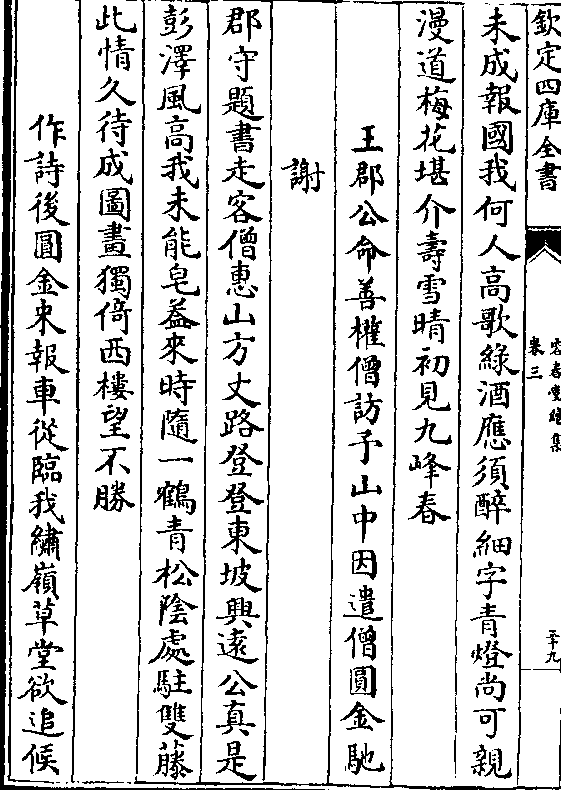 欽定四庫全書
容春堂續集
卷三
未成報國我何人高歌綠酒應須醉細字青燈尚可親
漫道梅花堪介壽雪晴初見九峰春
王郡公命善權僧訪予山中因遣僧圓金馳
謝
郡守題書走客僧惠山方丈路登登東坡興遠公真是
彭澤風高我未能皂葢來時隨一鶴青松陰處駐雙藤
此情久待成圖畫獨倚西樓望不勝
作詩後圓金來報車從臨我繡嶺草堂欲追候